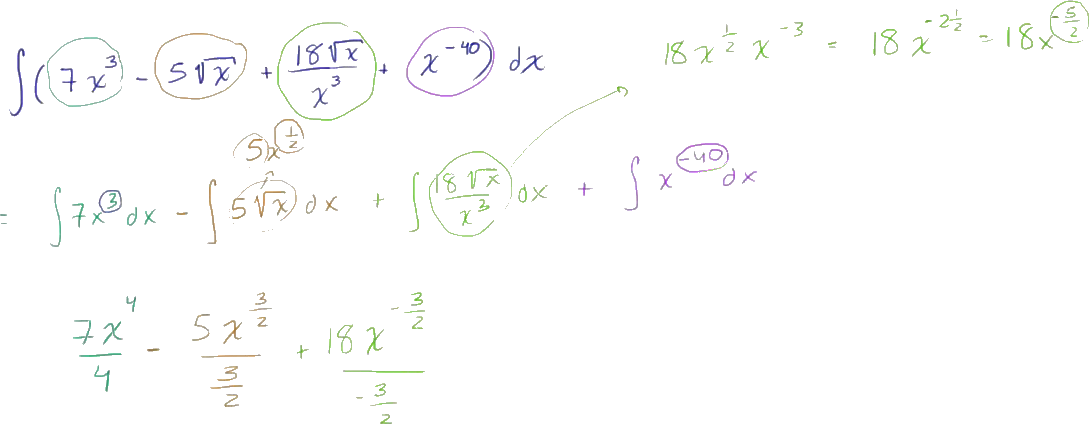 ∫(7x³ - 5√x + 18√x/x³ + x⁻⁴⁰) dx
18x^{1/2} x^{-3} = 18x^{-2\frac{1}{2}} = 18x^{-5/2}
5x^{1/2}
= ∫7x³dx - ∫5√x dx + ∫18√x/x³ dx + ∫x⁻⁴⁰dx
7x⁴/4 - 5x^{3/2}/(3/2) + 18x^{-3/2}/(-3/2)